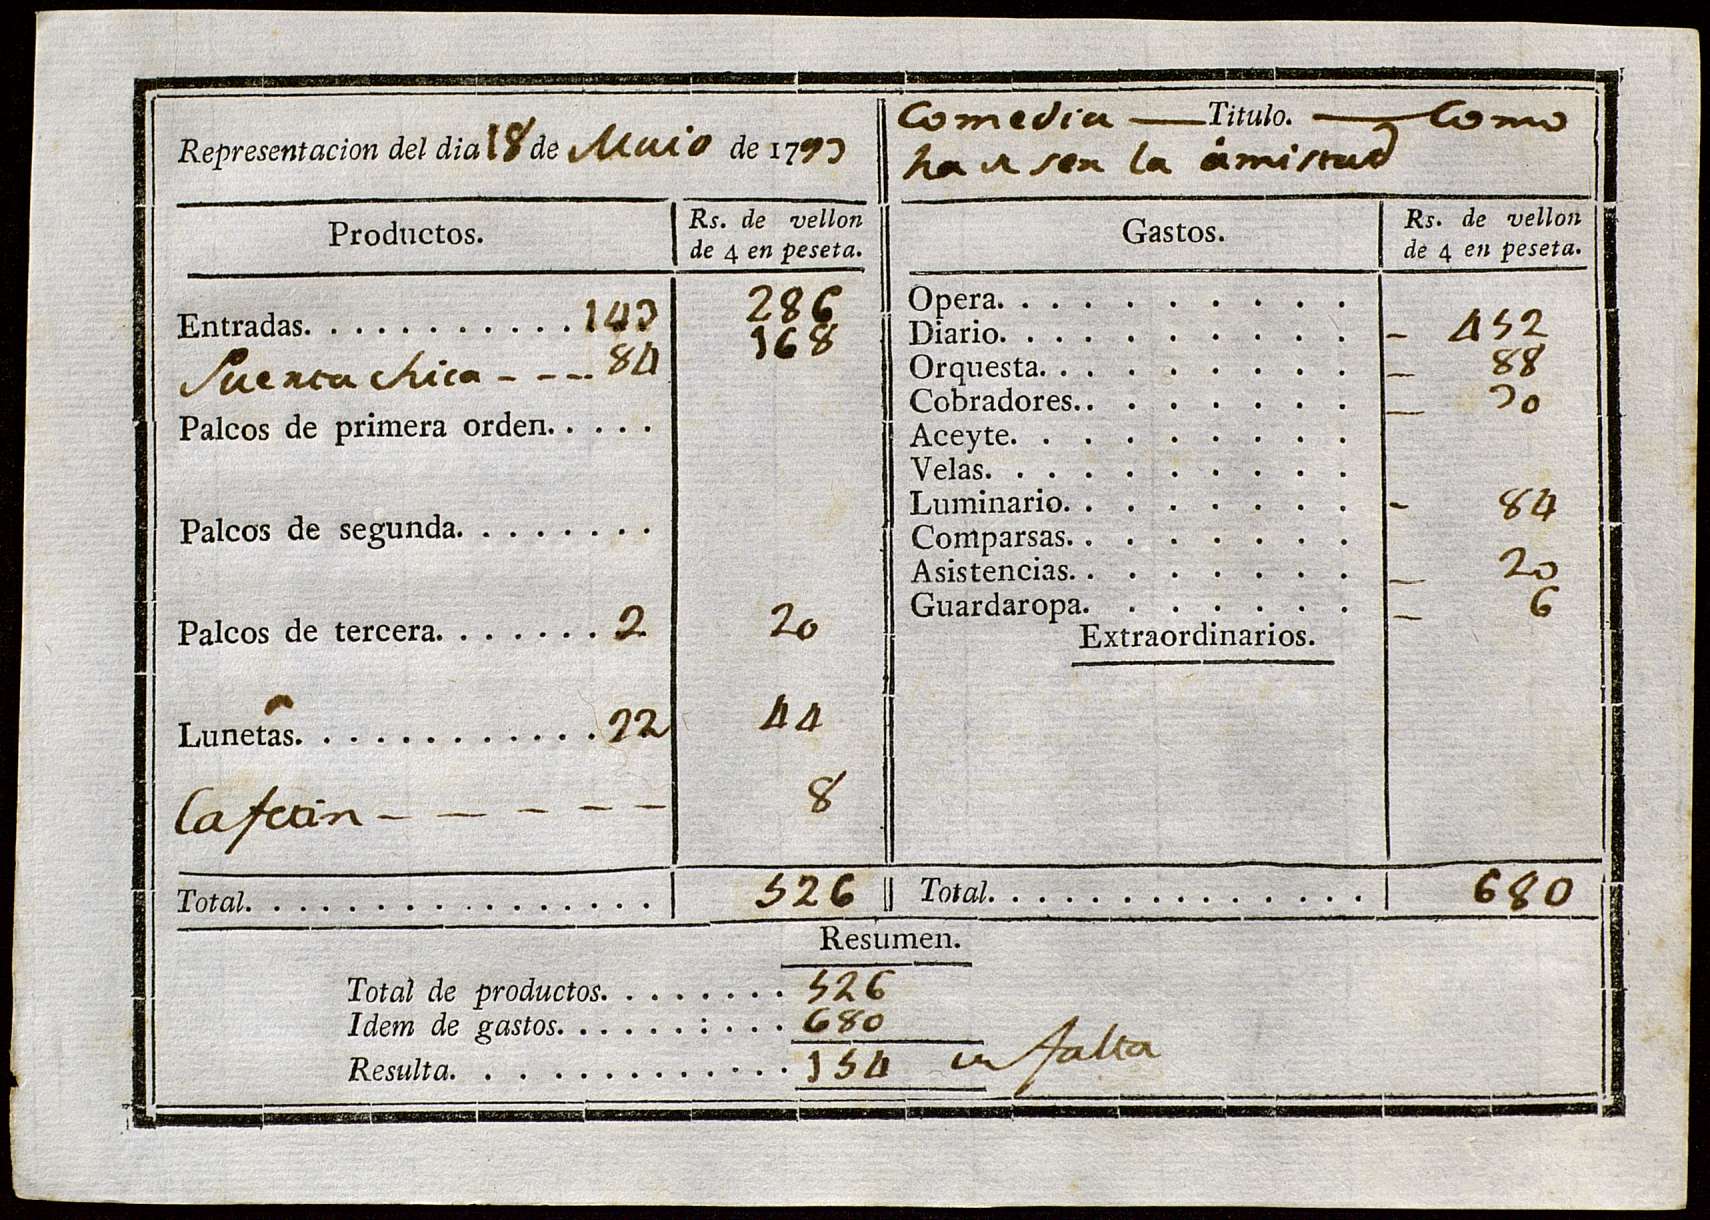 Representacion del dia 18 de Maio de 1793
Comedia — Titulo. — Como
ha de ser la amistad
Productos.
Rs. de vellon
de 4 en peseta.
Entradas. . . . . . . . . . . . 143 286
Puerta chica - - - 84 168
Palcos de primera orden. . . . .
Palcos de segunda. . . . . . . .
Palcos de tercera. . . . . . . 2 20
Lunetas. . . . . . . . . . . . 22 44
Cafetin - - - - - - 8
Total. . . . . . . . . . . . . . . . 526
Gastos.
Rs. de vellon
de 4 en peseta.
Opera. . . . . . . . . .
Diario. . . . . . . . . . - 452
Orquesta. . . . . . . . . - 88
Cobradores. . . . . . . . - 30
Aceyte. . . . . . . . .
Velas. . . . . . . . . .
Luminario. . . . . . . . - 84
Comparsas. . . . . . . .
Asistencias. . . . . . . . - 20
Guardaropa. . . . . . . - 6
Extraordinarios.
Total. . . . . . . . . . . . . . . 680
Resumen.
Total de productos. . . . . . . . 526
Idem de gastos. . . . . . : . . . 680
Resulta. . . . . . . . . . . . . 154 en falta